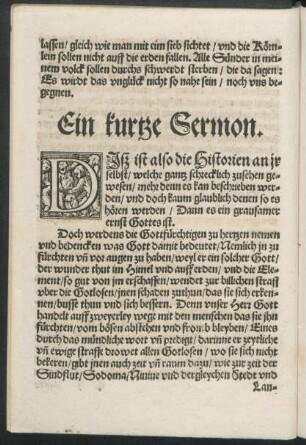 lassen/ gleich wie man mit eim sieb sichtet/ vnd die Körn-
lein sollen nicht auff die erden fallen. Alle Sünder in mei-
nem volck sollen durchs schwerdt sterben/ die da sagen:
Es wirdt das vnglück nicht so nahe sein/ noch vns be-
gegnen.
Ein kurtze Sermon.
DIsz ist also die Historien an jr
selbst/ welche gantz schrecklich zusehen ge-
wesen/ mehr denn es kan beschrieben wer-
den/ vnd doch kaum glaublich denen so es
hören werden/ Dann es ein grausamer
ernst Gottes ist.
Doch werdens die Gottfürchtigen zu hertzen nemen
vnd bedencken was Gott damit bedeutet/ Nemlich jn zu
fürchten vñ vor augen zu haben/ weyl er ein solcher Gott/
der wunder thut im Himel vnd auff erden/ vnd die Ele-
ment/ so gut von jm erschaffen/ wendet zur billichen straff
vber die Gotlosen/ jnen schaden zuthun/ das sie sich erken-
nen/ busst thun vnd sich bessern. Denn vnser Herr Gott
handelt auff zweyerley wege mit den menschen das sie jhn
fürchten/ vom bösen abstehen vnd fromb bleyben/ Eines
durch das mündliche wort vñ predigt/ darinne er zeytliche
vñ ewige straffe drowet allen Gotlosen/ wo sie sich nicht
bekeren/ gibt jnen auch zeit vñ raum dazu/ wie zur zeit der
Sindflut/ Sodoma/ Niniue vnd dergleychen Stedt vnd
Lan-